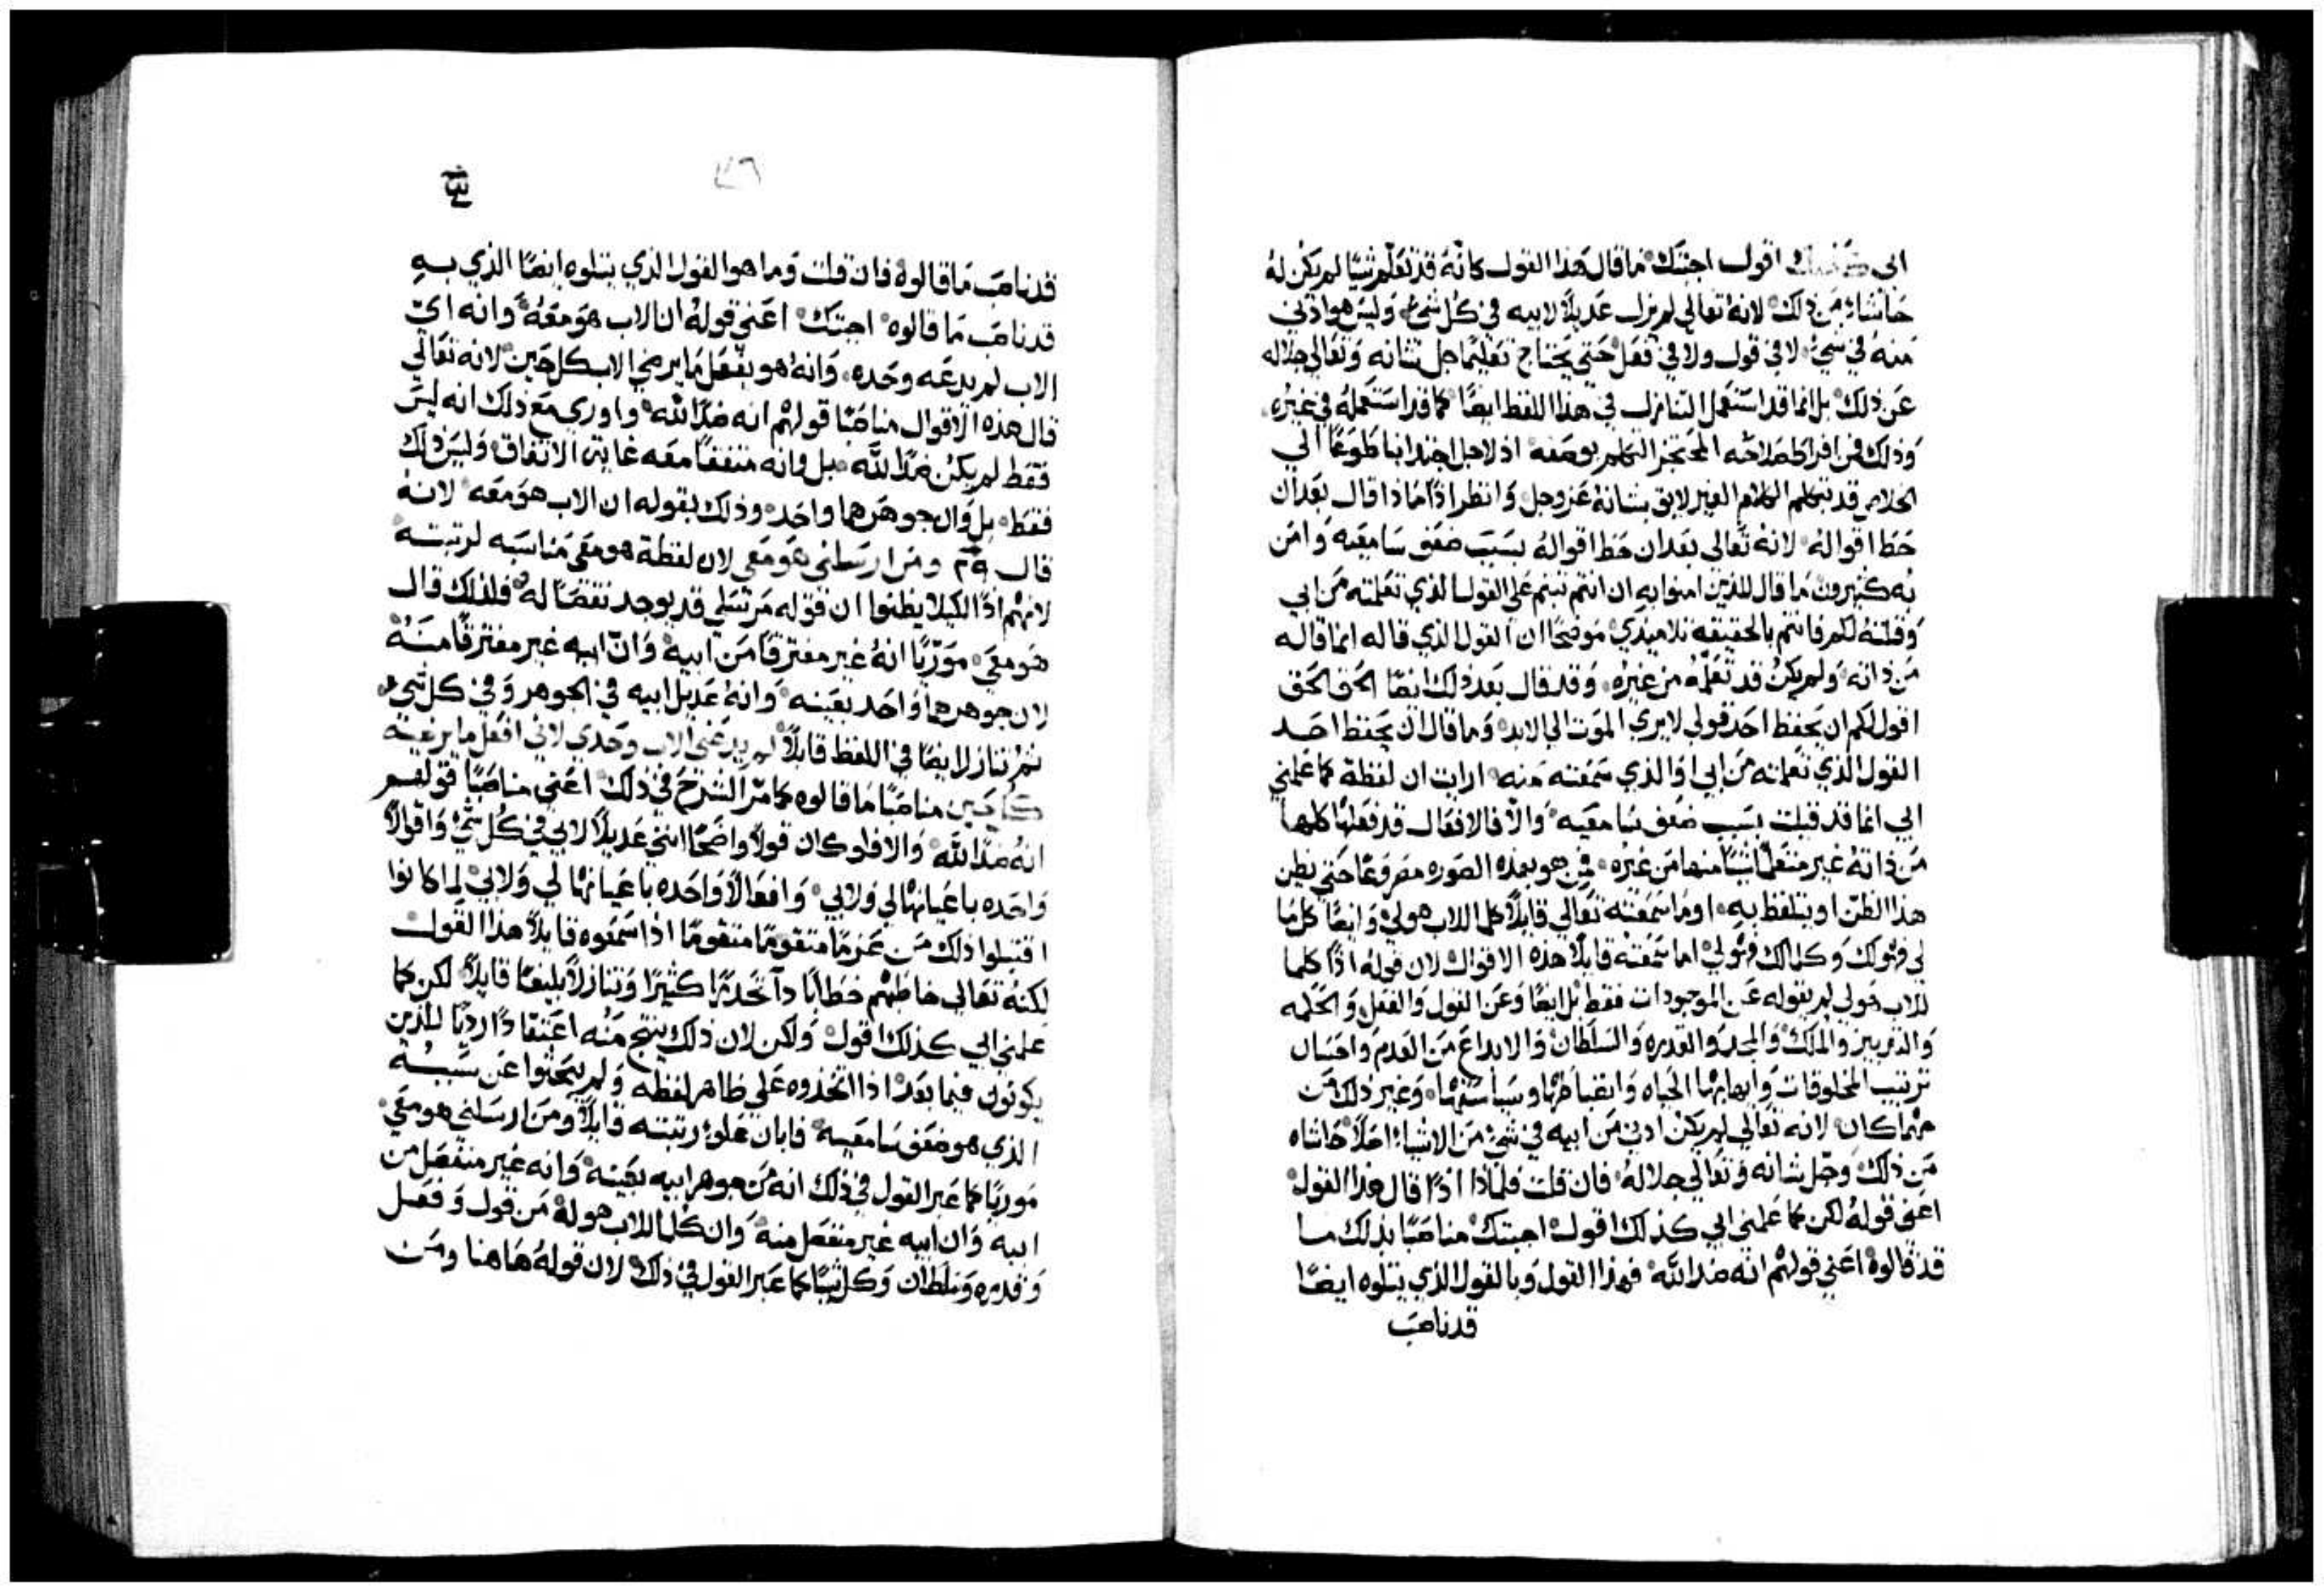 ابي كذلك اقول اجبتك ما قال هذا القول كانه قد تعلم شيًا لم يكن له
حاشاه من ذلك لانه تعالي لم يزل عديلاً لابيه في كل شيء وليس هو ادني
منه في شيء لا في قول ولا في فعل حتي يحتاج تعليمًا جل شانه وتعالي جلاله
عن ذلك بل انما قد استعمل التنازل في هذا اللفظ ايضًا كما قد استعمله في غيره
وذلك من افراط صلاحه المحتجز التكلم بوصفه اذ لاجل اجتذابنا طوعًا الي
الخلاص قد تكلم الكلام الغير لايق بشانه عز وجل وانظر اذًا ماذا قال بعد ان
حط اقواله لانه تعالي بعد ان حط اقواله بسبب ضعف سامعيه وامن
به كثيرون ما قال للذين امنوا به ان انتم ثبتم علي القول الذي تعلمته من ابي
وقلته لكم فانتم بالحقيقه تلاميذي موضحًا ان القول الذي قاله انما قاله
من ذاته ولم يكن قد تعلمه من غيره وقد قال بعد ذلك ايضًا الحق الحق
اقول لكم ان يحفظ احد قولي لا يري الموت الي الابد وما قال ان يحفظ احد
القول الذي تعلمته من ابي او الذي سمعته منه ارايت ان لفظة كما علمني
ابي انما قد قيلت بسبب ضعف سامعيه والا فالافعال قد فعلها كلها
من ذاته غير متعلمًا شيًا منها من غيره فمن هو بهذه الصوره مصروعًا حتي يظن
هذا الظن او يتلفظ به او ما سمعته تعالي قايلاً كلما للاب هو لي وايضًا كل ما
لي فهو لك وكلما لك فهو لي اما سمعته قايلاً هذه الاقوال لان قوله اذًا كلما
للاب هو لي لم يقوله عن الموجودات فقط بل ايضًا وعن القول والفعل والحكمه
والتدبير والملك والمجد والقدره والسلطان والابداع من العدم واحسان
ترتيب المخلوقات وايهابها الحياه وانضباطها وسياستها وغير ذلك من
مهما كان لانه تعالي لم يكن ادني من ابيه في شيء من الاشياء اصلاً حاشاه
من ذلك وجل شانه وتعالي جلاله فان قلت فلماذا اذًا قال هذا القول
اعني قوله لكن كما علمني ابي كذلك اقول اجبتك مناصبًا بذلك ما
قد قالوه اعني قولهم انه ضد الله فهذا القول وبالقول الذي يتلوه ايضًا
قد ناصب
٣٦
قد ناصب ما قالوه فان قلت وما هو القول الذي يتلوه ايضًا الذي به
قد ناصب ما قالوه اجبتك اعني قوله ان الاب هو معه وانه اي
الاب لم يدعه وحده وانه هو يفعل ما يرضي الاب كل حين لانه تعالي
قال هذه الاقوال مناصبًا قولهم انه ضد الله واوري مع ذلك انه ليس
فقط لم يكن ضد الله بل وانه متفقًا معه غاية الاتفاق وليس ذلك
فقط بل وان جوهرهما واحد وذلك بقوله ان الاب هو معه لانه
قال ٢٩ ومن ارسلني هو معي لان لفظة هو معي مناسبه لرتبته
لانهم اذًا لكيلا يظنوا ان قوله مرسلي قد يوجد نقصًا له فلذلك قال
هو معي موريًا انه غير مفترقًا من ابيه وان ابيه غير مفترقًا منه
لان جوهرهما واحد بعينه وانه عديل ابيه في الجوهر وفي كل شيء
ثم تنازل ايضًا في اللفظ قايلاً لم يدعني الاب وحدي لاني افعل ما يرضيه
كل حين مناصبًا ما قالوه كما مر الشرح في ذلك اعني مناصبًا قولهم
انه ضد الله والا فلو كان قولاً واضحًا انني عديلاً لابي في كل شيء واقوالاً
واحده باعيانها لي ولابي وافعالاً واحده باعيانها لي ولابي لما كانوا
اقتبلوا ذلك من عزمًا متقومًا متقومًا اذا سمعوه قايلاً هذا القول
لكنه تعالي خاطبهم خطابًا ذا تحدرًا كثيرًا وتنازلاً بليغًا قايلاً لكن كما
علمني ابي كذلك اقول ولكن لان ذلك ينتج منه اعتقادًا رديًا للذين
يكونون فيما بعد اذا اتخذوه علي ظاهر لفظه ولم يبحثوا عن سببه
الذي هو ضعف سامعيه فابان علو رتبته قايلاً ومن ارسلني هو معي
موريًا كما عبر القول في ذلك انه من جوهر ابيه بعينه وانه غير منفصل من
ابيه وان ابيه غير منفصل منه وان كلما للاب هو له من قول وفعل
وقدره وسلطان وكل شيًا كما عبر القول في ذلك لان قوله هاهنا ومن